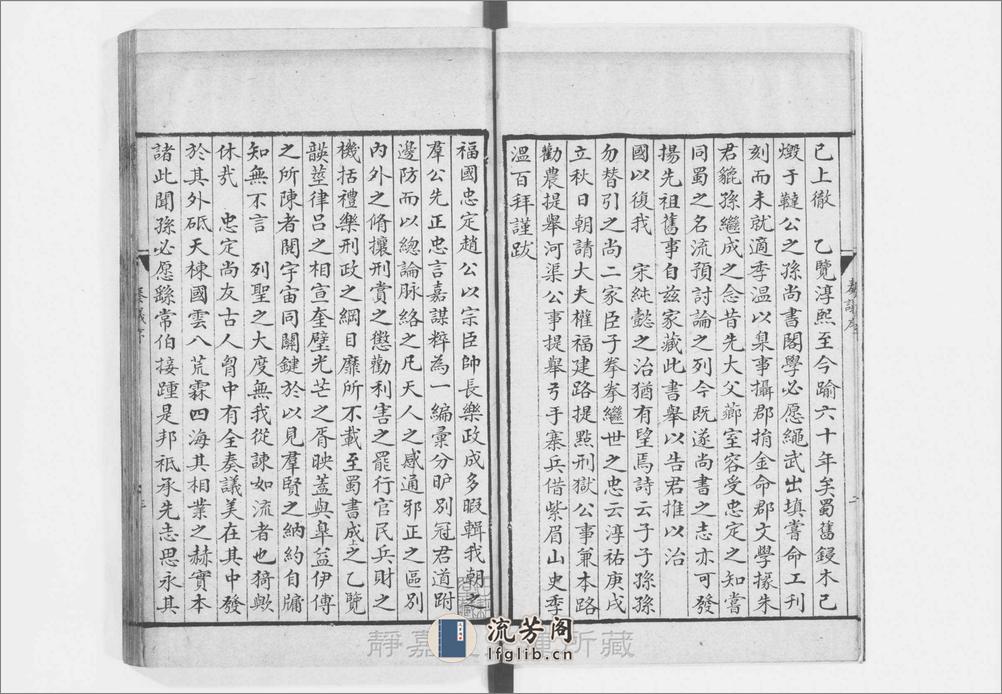 已上徹　乙覽淳熙至今踰六十年矣蜀舊鋟木已
燬于韃公之孫尚書閣學必愿繩武出填嘗命工刊
刻而未就適季溫以臬事攝郡捐金命郡文學掾朱
君貔孫繼成之念昔先大父薌室容受忠定之知嘗
同蜀之名流預討論之列今既遂尚書之志亦可發
揚先祖舊事自兹家藏此書舉以告君推以治
國以復我　宋純懿之治猶有望焉詩云子子孫孫
勿替引之尚二家臣子拳拳繼世之忠云淳祐庚戌
立秋日朝請大夫權福建路提點刑獄公事兼本路
勸農提舉河渠公事提舉弓手寨兵借紫眉山史季
溫百拜謹跋
福國忠定趙公以宗臣帥長樂政成多暇輯我朝之
羣公先正忠言嘉謀粹為一編彙分昈別冠君道跗
邊防而以總論脉絡之凡天人之感通邪正之區別
內外之脩攘刑賞之懲勸利害之罷行官民兵財之
機括禮樂刑政之綱目靡所不載至蜀書成上之乙覽
韺莖律呂之相宣奎璧光芒之胥映蓋與臯益伊傅
之所陳者閱宇宙同關鍵於以見羣賢之納約自牖
知無不言　列聖之大度無我從諫如流者也猗歟
休哉　忠定尚友古人胷中有全奏議美在其中發
於其外砥天棟國雲八荒霖四海其相業之赫實本
諸此聞孫必愿繇常伯接踵是邦祗承先志思永其
靜嘉
所藏
流芳阁
lfglib.cn